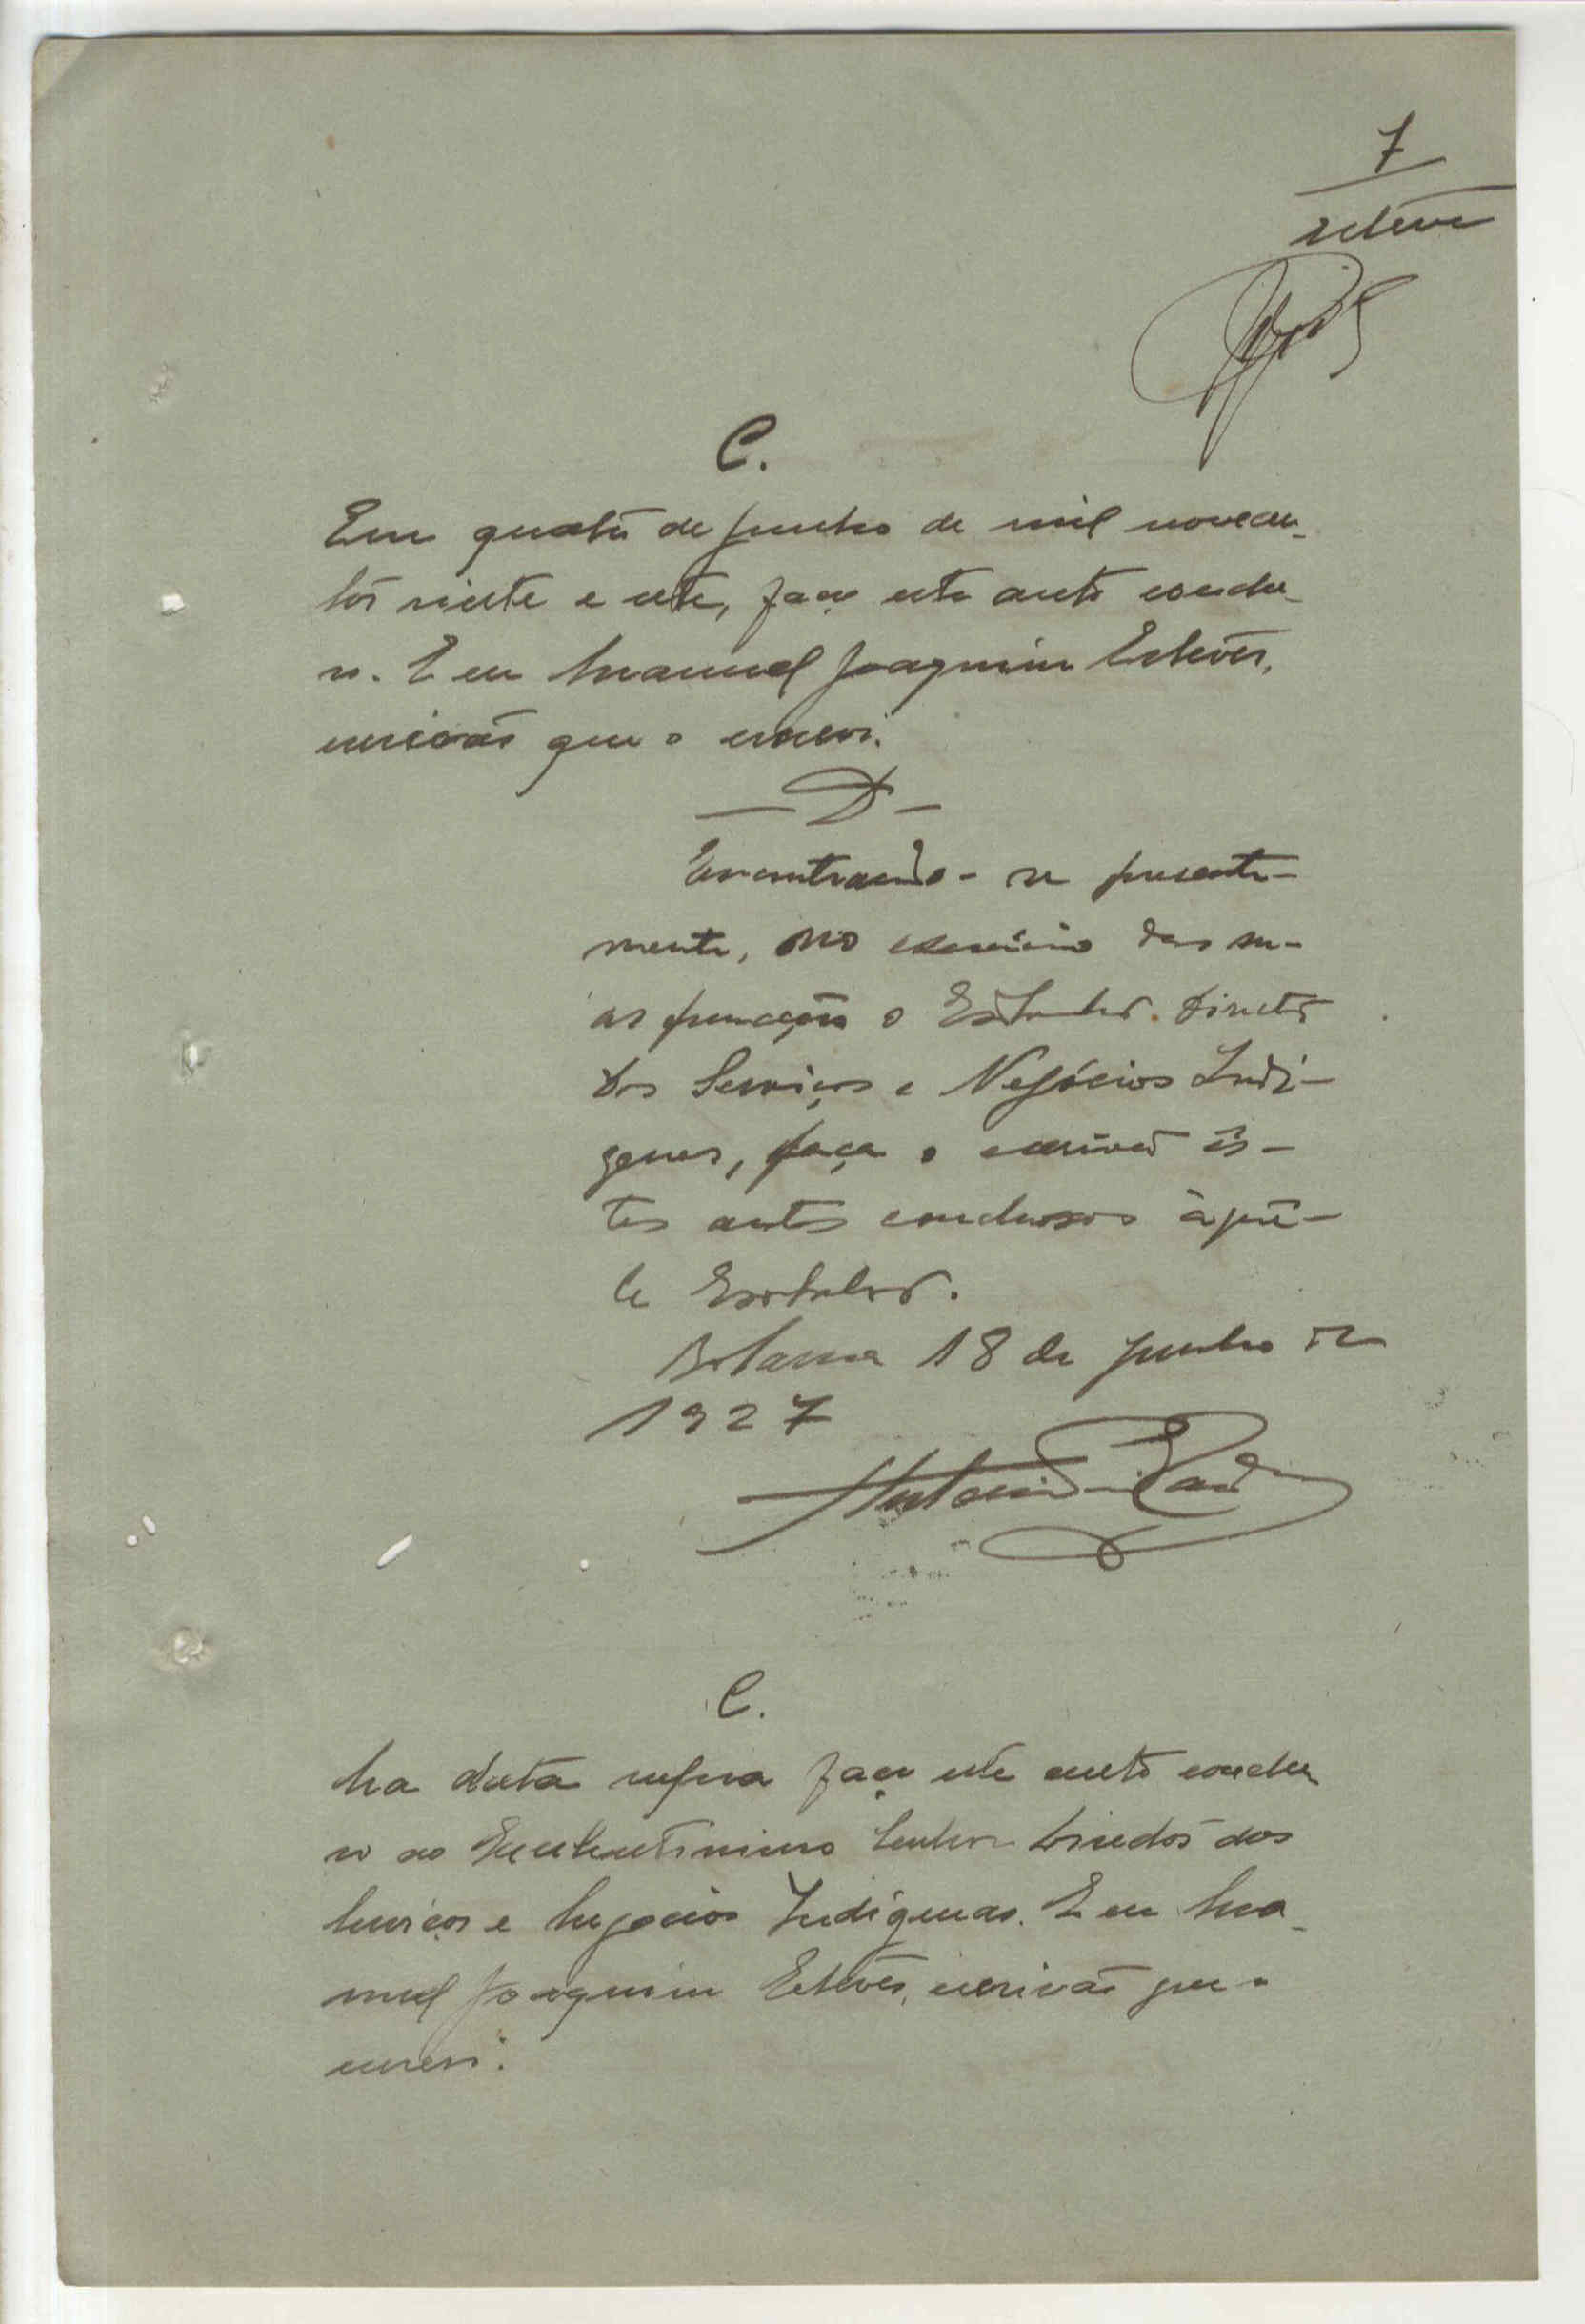 7
C.
Em quatro de Junho de mil novecen-
tos vinte e sete, faço este auto conclu-
so. E eu Manuel Joaquim Estevês,
escrivão que o escrevi.
— D —
Encontrando-se presente-
mente, no exercicio das su-
as funcções o Ex.mo Senhor. Director
dos Serviços e Negócios Indi-
genas, faça o escrivão ês-
tes autos conclusos àquê-
le Ex.mo Senhor.
Bolama 18 de Junho de
1927
C.
Na data supra faço este auto conclu
so ao Excelentissimo Senhor Director dos
Serviços e Negocios Indigenas. E eu Ma-
nuel Joaquim Estevês, escrivão que o
escrevi.